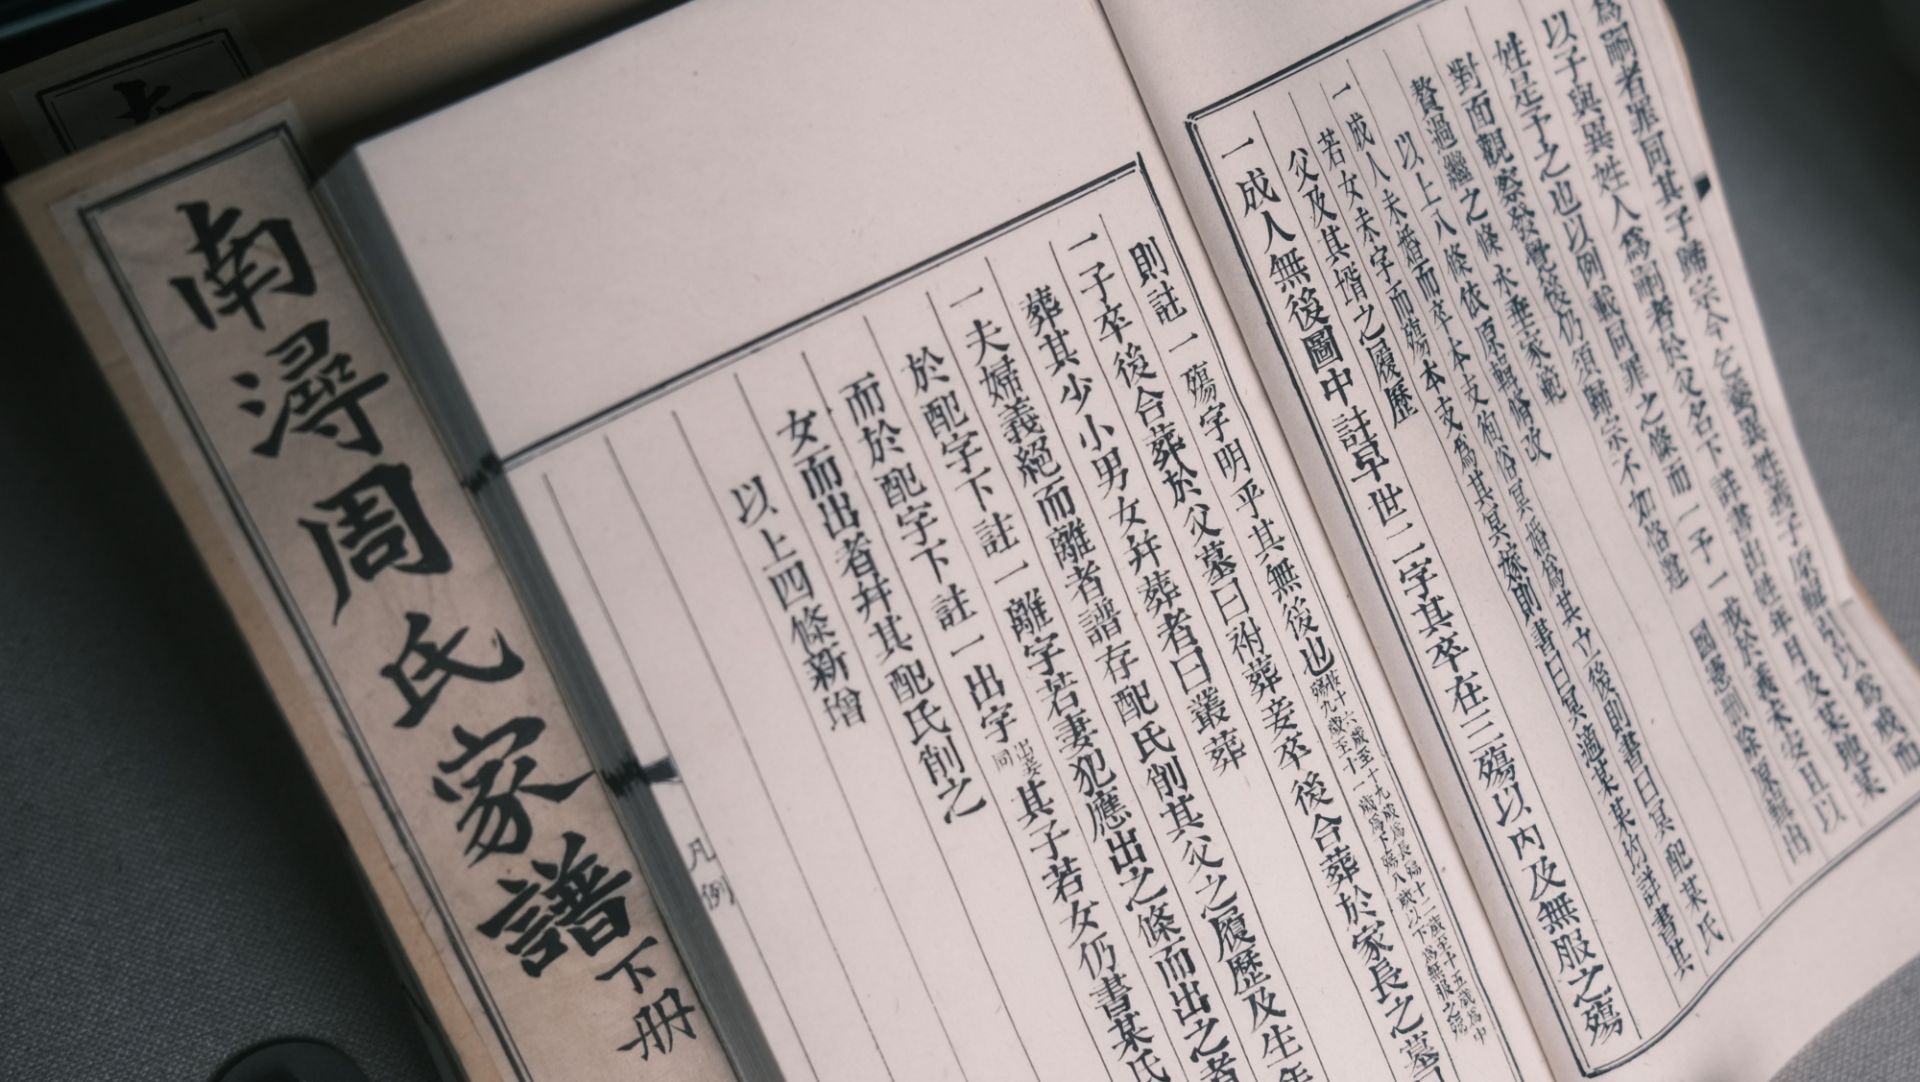 為嗣者罪同其子歸宗今乞養異姓為子原輯引以為戒而
以子與異姓人為嗣者於父名下詳書出姓年月及某地某
姓是予之也以例載同罪之條而一予一戒於義未安且以
對面觀察發覺後仍須歸宗不如恪遵 國憲刪除原輯出
贅過繼之條永垂家範
以上八條依原輯修改
一成人未婚而卒本支徇俗冥婚為其立後則書曰冥配某氏
若女未字而殤本支為其冥嫁則書曰冥適某某均詳書其
父及其壻之履歷
一成人無後圖中註早世二字其卒在三殤以內及無服之殤
則註一殤字明乎其無後也
十六歲至十九歲為長殤十二歲至十五歲為中
殤八歲至十一歲為下殤八歲以下為無服之殤
一子卒後合葬於父墓曰祔葬妾卒後合葬於家長之墓
葬其少小男女并葬者曰叢葬
一夫婦義絕而離者譜存配氏削其父之履歷及生年
於配字下註一離字若妻犯應出之條而出之者
而於配字下註一出字 出妾同 其子若女仍書某氏
女而出者并其配氏削之
以上四條新增
凡例
南潯周氏家譜下册